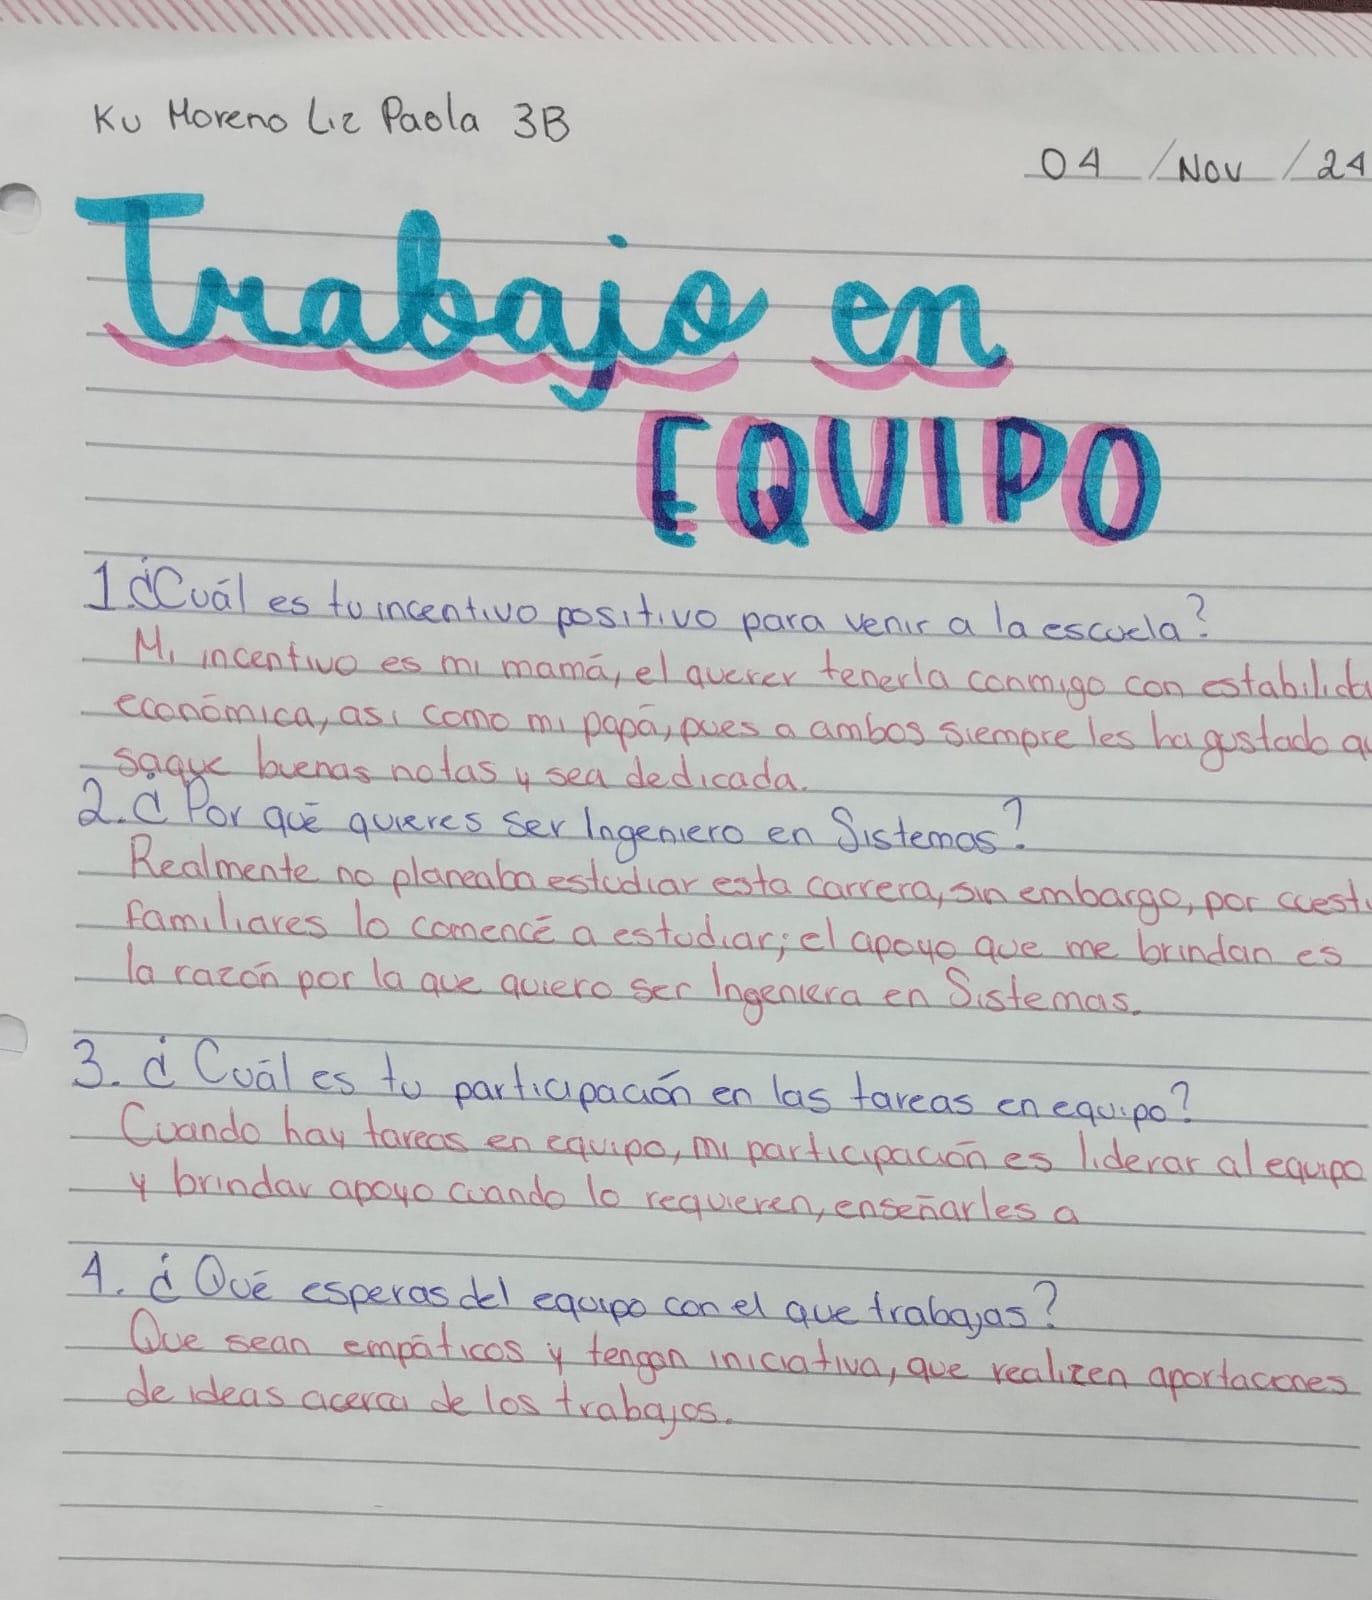 Ku Moreno Liz Paola 3B
04 / Nov / 24
Trabajo en
EQUIPO
1. ¿Cuál es tu incentivo positivo para venir a la escuela?
Mi incentivo es mi mamá, el querer tenerla conmigo con
económica, así como mi papá, pues a ambos siempre les ha gustado
saque buenas notas y sea dedicada.
2. ¿Por qué quieres ser Ingeniero en Sistemas?
Realmente no planeaba estudiar esta carrera, sin embargo, por
familiares lo comencé a estudiar; el apoyo que me brindan es
la razón por la que quiero ser Ingeniera en Sistemas.
3. ¿Cuál es tu participación en las tareas en equipo?
Cuando hay tareas en equipo, mi participación es liderar al equipo
y brindar apoyo cuando lo requieren, enseñarles a
4. ¿Qué esperas del equipo con el que trabajas?
Que sean empáticos y tengan iniciativa, que realizen aportaciones
de ideas acerca de los trabajos.